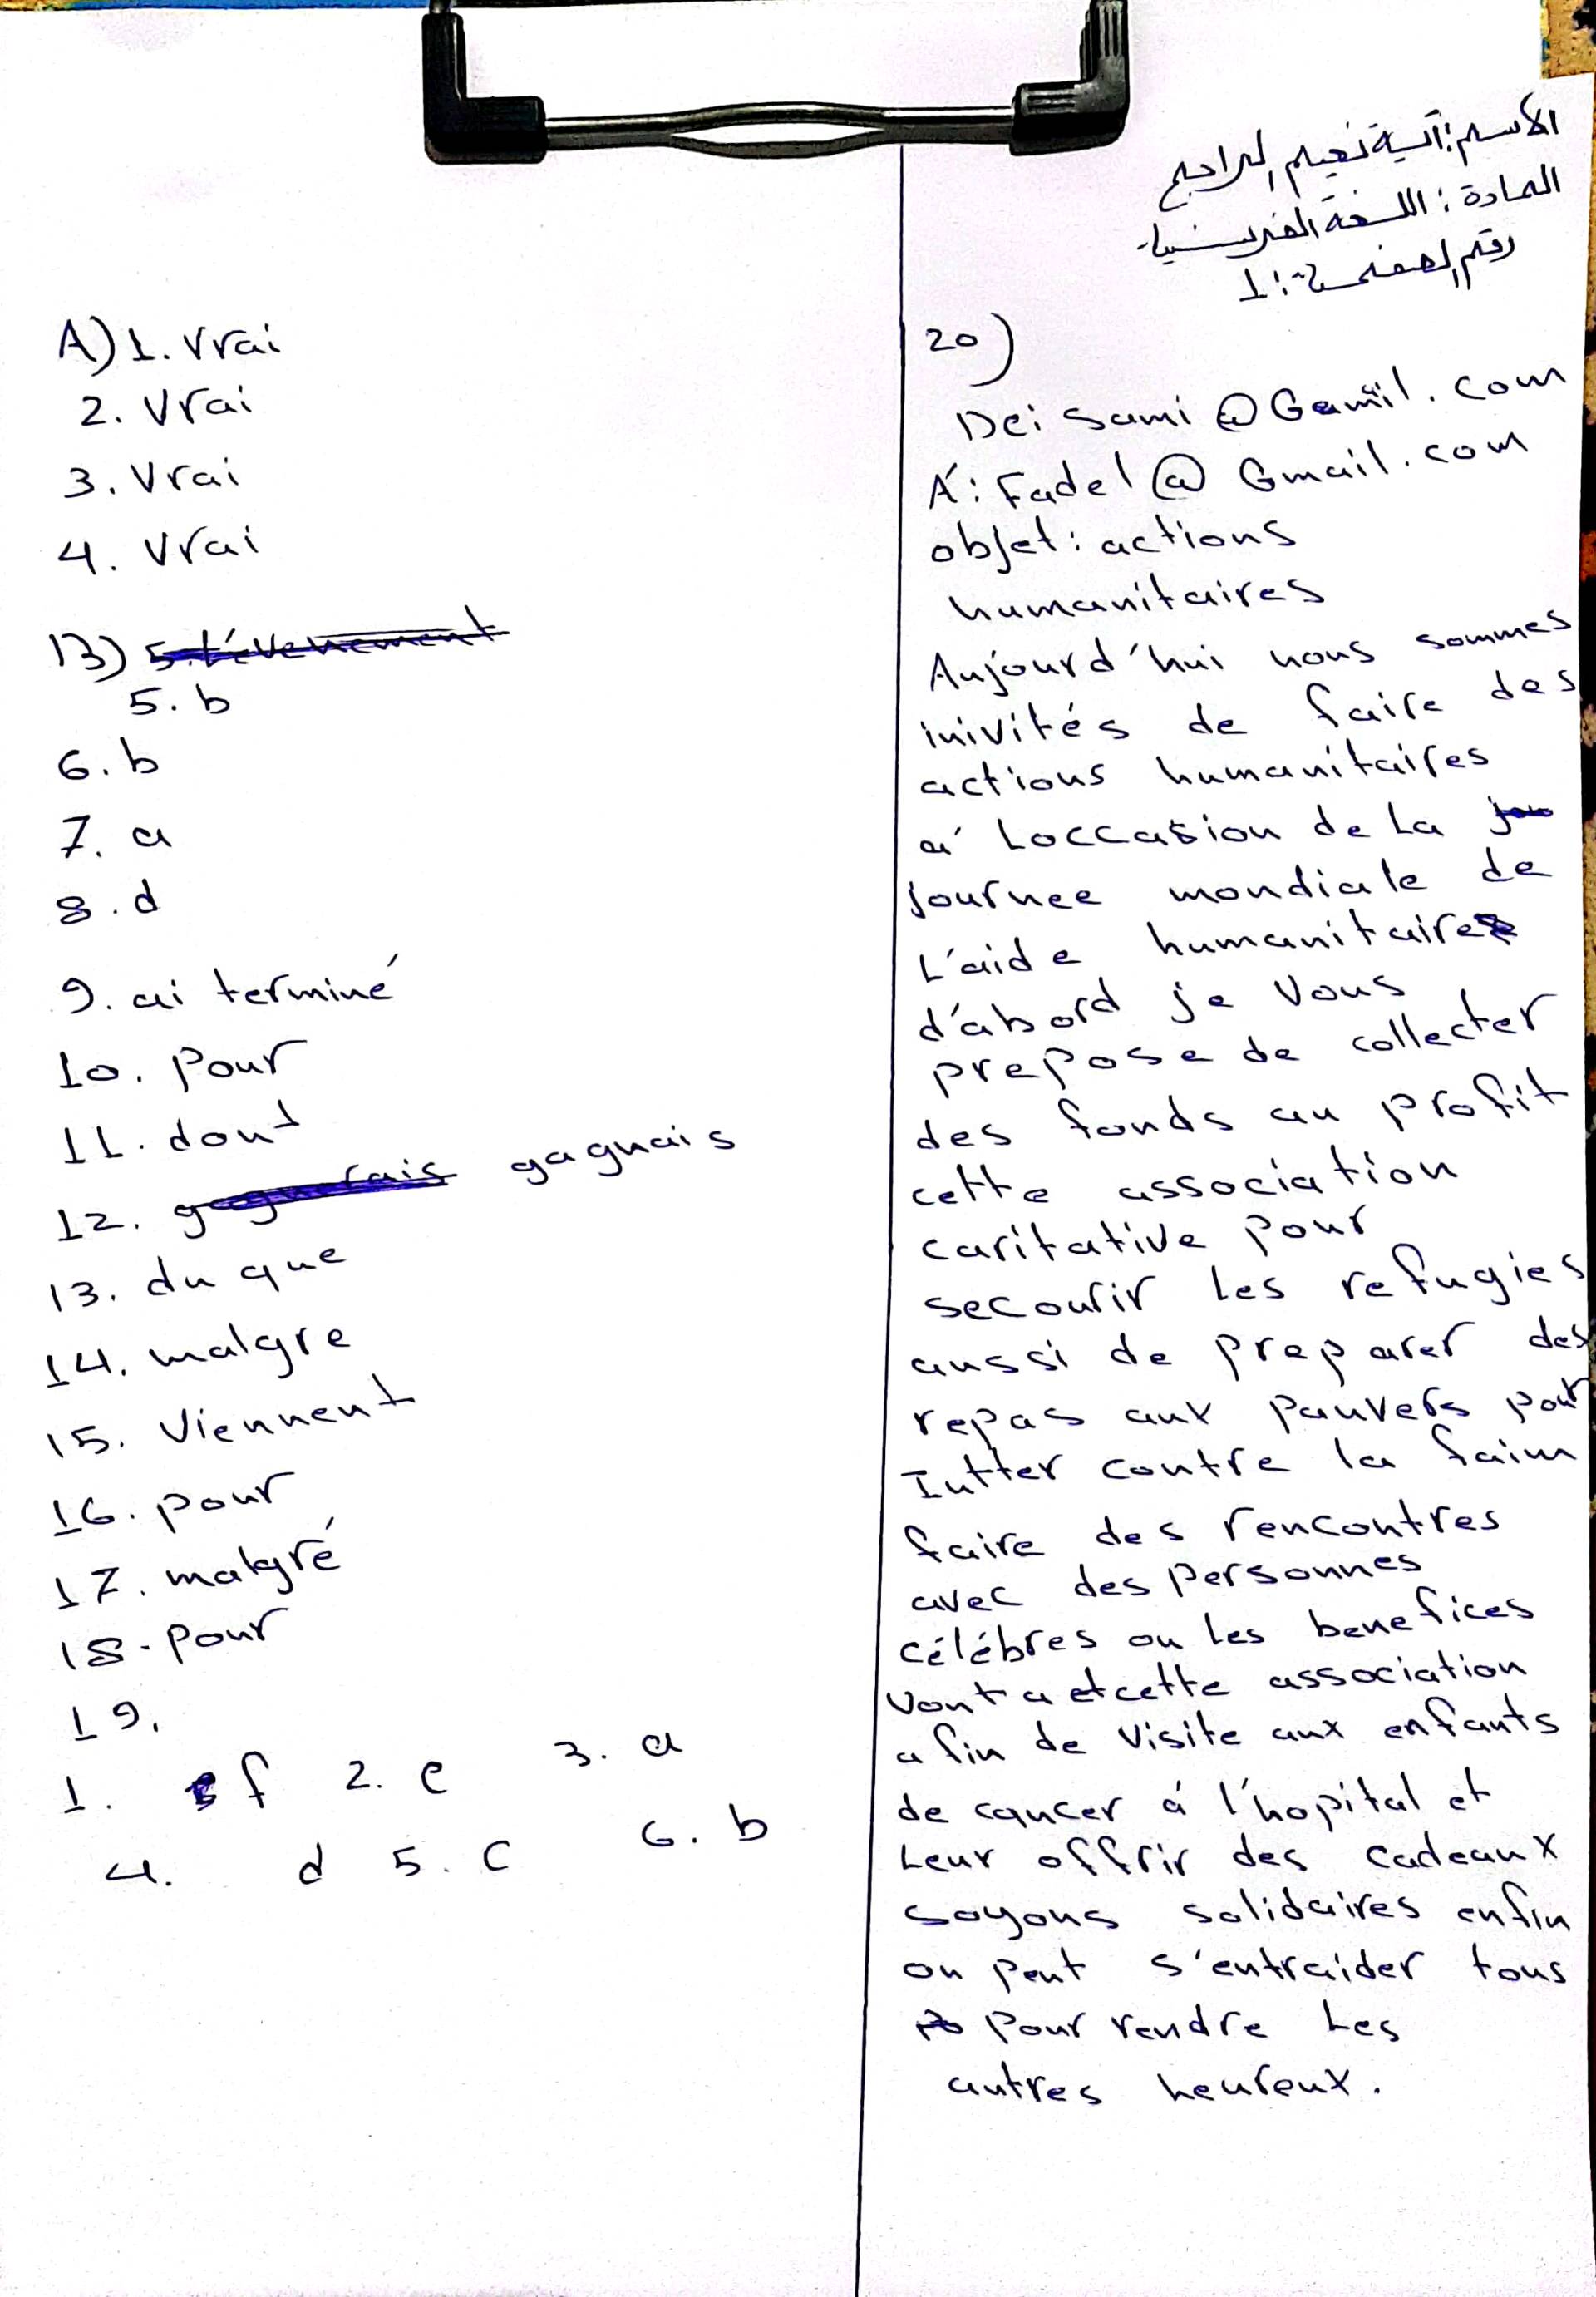 الاسم: آسية نعيم المراجع
المادة: اللغة الفرنسية
رقم الصفحة: 1
A) 1. Vrai
2. Vrai
3. Vrai
4. Vrai
B) 5. L'évenement
5. b
6. b
7. a
8. d
9. ai terminé
10. Pour
11. dont
12. gagnais
13. du que
14. malgre
15. Viennent
16. pour
17. malgré
18. pour
19.
1. f 2. e 3. a
4. d 5. c 6. b
20)
De: Sami @ Gamil. com
A': Fadel @ Gmail. com
objet: actions
humanitaires
Aujourd'hui nous sommes
inivités de faire des
actions humanitaires
a' Loccasion de La
journee mondiale de
L'aide humanitaire
d'abord je Vous
prepose de collecter
des fonds au profit
cette association
caritative pour
secourir Les refugies
aussi de preparer des
repas aux pauvers pour
lutter contre la faim
faire des rencontres
avec des personnes
célébres ou Les benefices
vont a et cette association
a fin de visite aux enfants
de cancer á l'hopital et
Leur offrir des cadeaux
soyons solidaires enfin
on peut s'entraider tous
pour rendre Les
autres heureux.